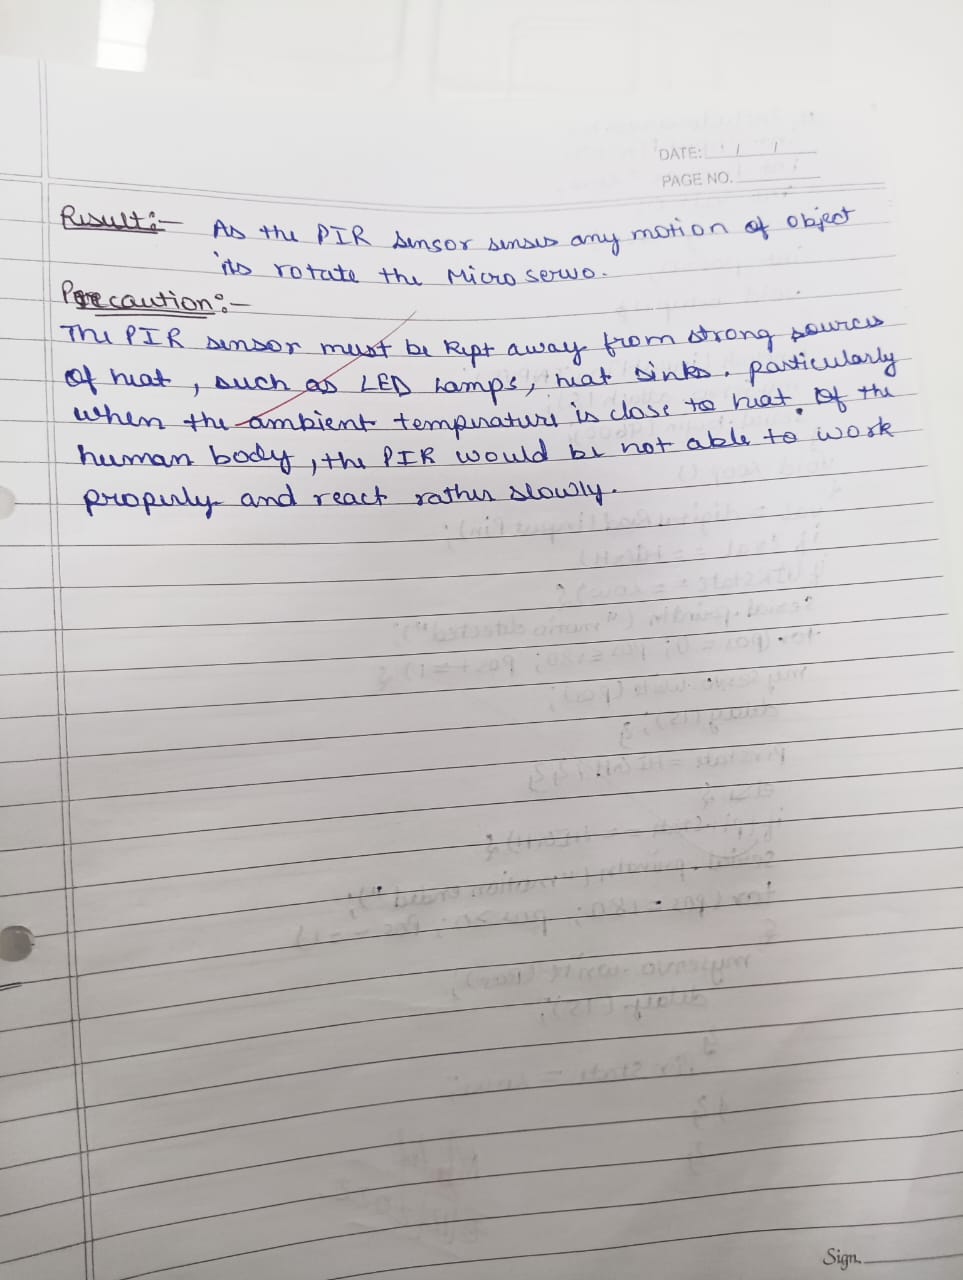 DATE: / /
PAGE NO.
Result:- As the PIR sensor senses any motion of object
its rotate the Micro servo.
Precaution:-
The PIR sensor must be kept away from strong sources
of heat, such as LED Lamps, heat sinks. particularly
when the ambient temperature is close to heat. Of the
human body, the PIR would be not able to work
properly and react rather slowly.
Sign.